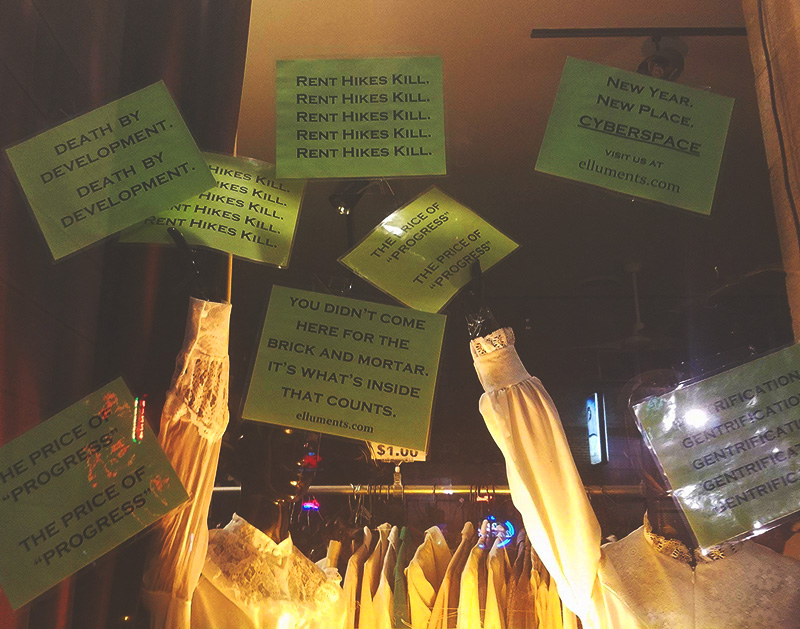 RENT HIKES KILL.
RENT HIKES KILL.
RENT HIKES KILL.
RENT HIKES KILL.
RENT HIKES KILL.
NEW YEAR.
NEW PLACE.
CYBERSPACE
VISIT US AT
elluments.com
DEATH BY
DEVELOPMENT.
DEATH BY
DEVELOPMENT.
HIKES KILL.
IKES KILL.
IKES KILL.
NT HIKES KILL.
RENT HIKES KILL.
THE PRICE OF
"PROGRESS"
THE PRICE OF
"PROGRESS"
YOU DIDN'T COME
HERE FOR THE
BRICK AND MORTAR.
IT'S WHAT'S INSIDE
THAT COUNTS.
elluments.com
$1.00
HE PRICE OF
"PROGRESS"
THE PRICE OF
"PROGRESS"
RIFICATION
GENTRIFICATIO
GENTRIFICATI
GENTRIFICATI
GENTRIFIC